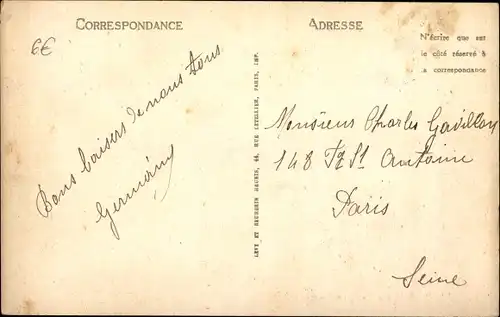 CORRESPONDANCE
6€
Bons baisers de nous tous
Germain
ADRESSE
N'écrire que sur
le côté réservé à
la correspondance
LEVY ET NEURDEIN REUNIS, 44, RUE LETELLIER, PARIS, IMP.
Monsieur Charles Gavillon
148 Fg St Antoine
Paris
Seine